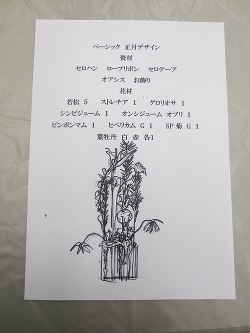 ベーシック 正月デザイン
資材
セロハン ロープリボン セロテープ
オアシス お飾り
花材
若松 5 ストレチア 1 グロリオサ 1
シンビジューム 1 オンシジューム オブリ 1
ピンポンマム 1 ヒペリカム G 1 SP菊 G 1
葉牡丹 白 赤 各1